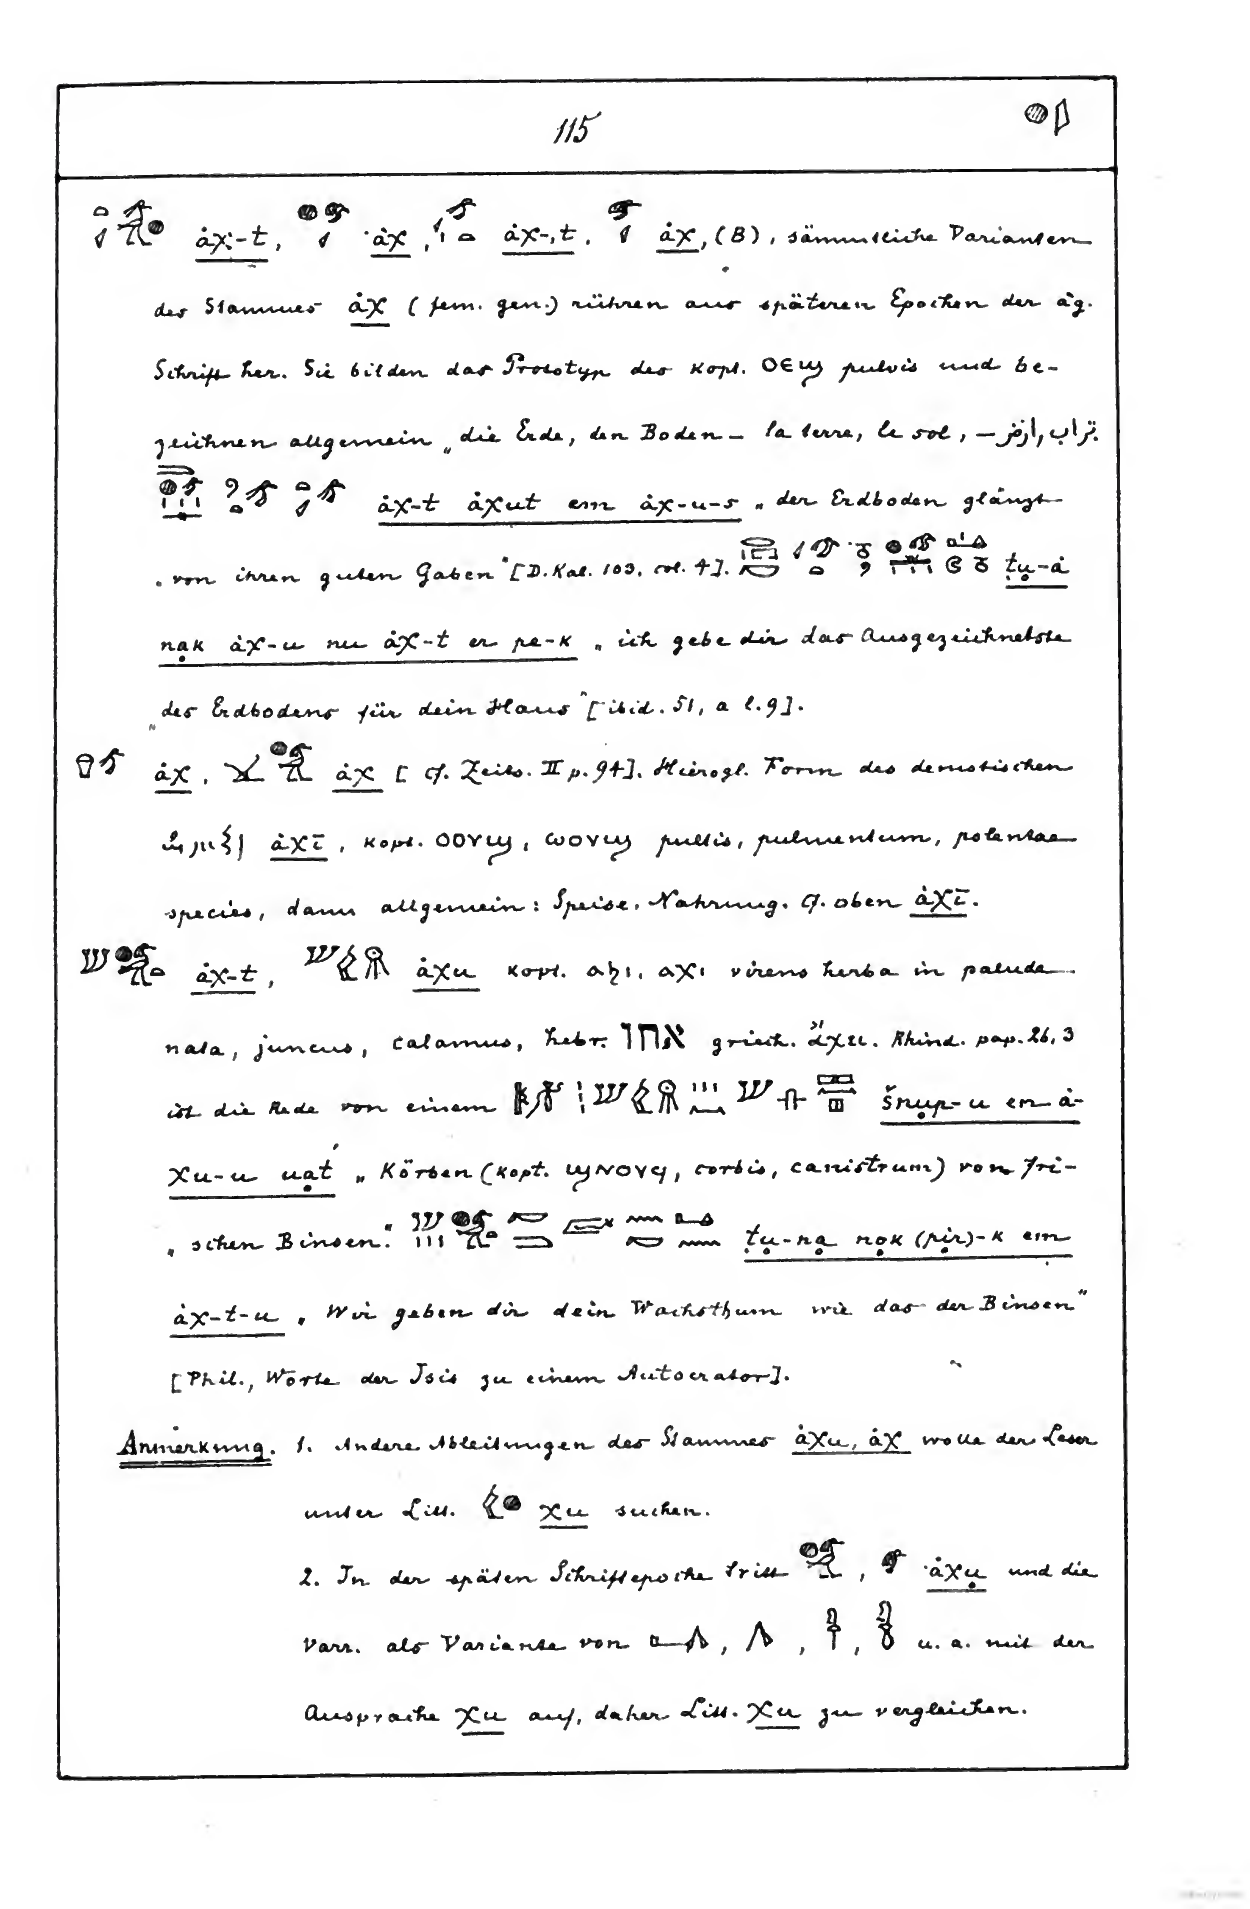 115
ȧχ-t, ȧχ, ȧχ-,t, ȧχ, (B), sämmtliche Varianten
des Stammes ȧχ (fem. gen.) rühren aus späteren Epochen der äg.
Schrift her. Sie bilden das Prototyp des kopt. ⲟⲉⲓϣ pulvis und be-
zeichnen allgemein „die Erde, den Boden – la terre, le sol, – تراب, ارض.
ȧχ-t ȧχut em ȧχ-u-s „der Erdboden glänzt
„von ihren guten Gaben“ [D. Kal. 103, col. 4]. ṭu̩-ȧ
na̩k ȧχ-u nu ȧχ-t er pe-k „ich gebe dir das Ausgezeichnetste
„des Erdbodens für dein Haus“ [ibid. 51, a l. 9].
ȧχ, ȧχ [cf. Zeits. II p. 94]. Hierogl. Form des demotischen
ȧχī, kopt. ⲟⲟⲩϣ, ⲱⲟⲩϣ pultis, pulmentum, polentae
species, dann allgemein: Speise, Nahrung. Cf. oben ȧχī.
ȧχ-t, ȧχu kopt. ⲁϧⲓ, ⲁⲭⲓ virens herba in palude
nata, juncus, calamus, hebr. אחו griech. ἄχι. Rhind. pap. 26, 3
ist die Rede von einem šnu̩p-u en ȧ-
χu-u ua̩t́ „Körben (kopt. ϣⲛⲟⲩϥ, corbis, canistrum) von fri-
„schen Binsen“. ṭu̩-na̩ na̩k (pi̩r)-k em
ȧχ-t-u „Wir geben dir dein Wachsthum wie das der Binsen“
[Phil., Worte der Isis zu einem Autocrator].
Anmerkung. 1. Andere Ableitungen des Stammes ȧχu, ȧχ wolle der Leser
unter Litt. χu suchen.
2. In der späten Schriftepoche tritt , ȧχu̩ und die
Varr. als Variante von , , , u. a. mit der
Aussprache χu auf, daher Litt. χu zu vergleichen.